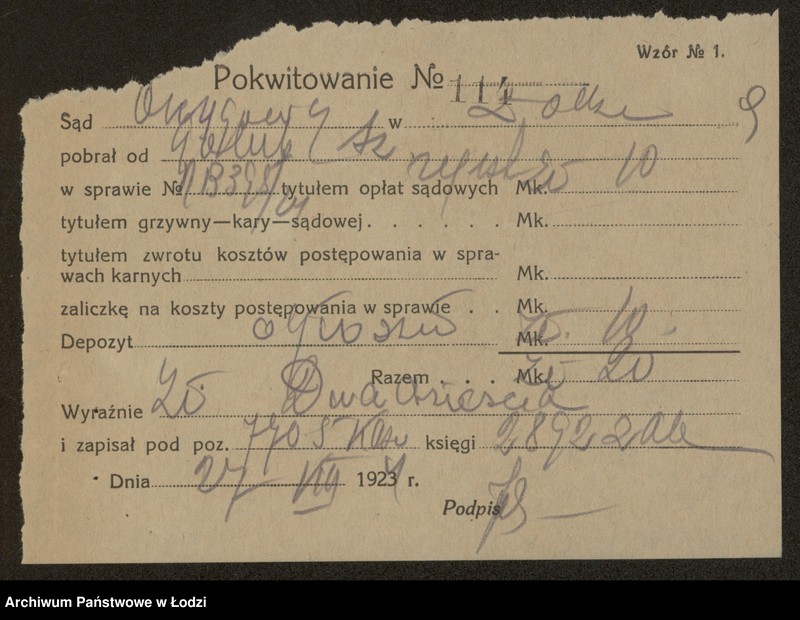 Wzór № 1.
Pokwitowanie № 114
Sąd Okręgowy w Łodzi
pobrał od
w sprawie № tytułem opłat sądowych Mk. zł 10
tytułem grzywny—kary—sądowej . . . . . . Mk.
tytułem zwrotu kosztów postępowania w spra-
wach karnych Mk.
zaliczkę na koszty postępowania w sprawie . . Mk.
Depozyt ogłoszeń Mk. zł. 10.
Razem . . . Mk. zł 20
Wyraźnie Zł. Dwadzieścia
i zapisał pod poz. 7705 księgi 2892
Dnia 27 VIII 1924 r.
Podpis
Archiwum Państwowe w Łodzi